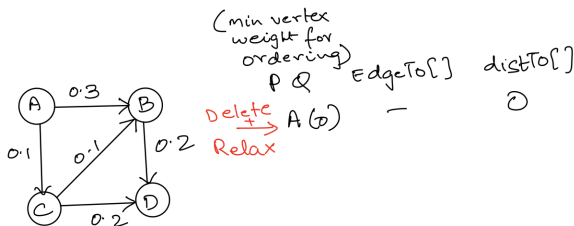 (min vertex
weight for
ordering)
PQ
EdgeTo[]
distTo[]
Delete
+
Relax
A(0)
-
0
A
0.3
B
0.1
0.1
0.2
C
0.2
D